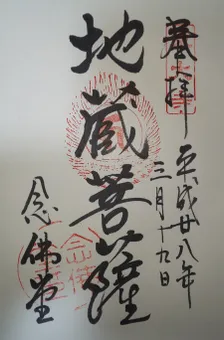 奉拝
平成廿八年
三月十九日
地蔵菩薩
念佛堂